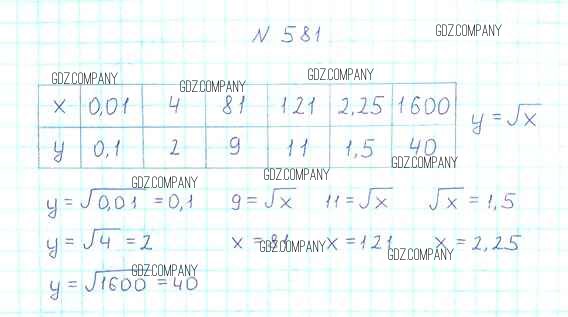 N 581
GDZ.COMPANY
GDZ.COMPANY GDZ.COMPANY GDZ.COMPANY
x 0,01 4 81 121 2,25 1600
y 0,1 2 9 11 1,5 40
y = √x
GDZ.COMPANY
GDZ.COMPANY GDZ.COMPANY
y = √0,01 = 0,1 9 = √x 11 = √x √x = 1,5
y = √4 = 2 x = 81 x = 121 x = 2,25
GDZ.COMPANY GDZ.COMPANY
GDZ.COMPANY
y = √1600 = 40